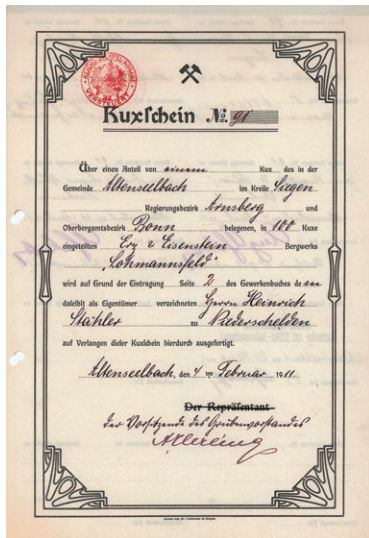 Kuxschein No. 91
Über einen Anteil von einem Kux des in der
Gemeinde Altenseelbach im Kreise Siegen
Regierungsbezirk Arnsberg und
Oberbergamtsbezirk Bonn belegenen, in 100 Kuxe
eingeteilten Erz & Eisenstein Bergwerks
„Lohmannsfeld"
wird auf Grund der Eintragung Seite 2 des Gewerkenbuches de m
daselbst als Eigentümer verzeichneten Herrn Heinrich
Stähler zu Niederschelden
auf Verlangen dieser Kuxschein hierdurch ausgefertigt.
Altenseelbach, den 4 ten Februar 1911.
Der Repräsentant
der Vorsitzende des Grubenvorstandes